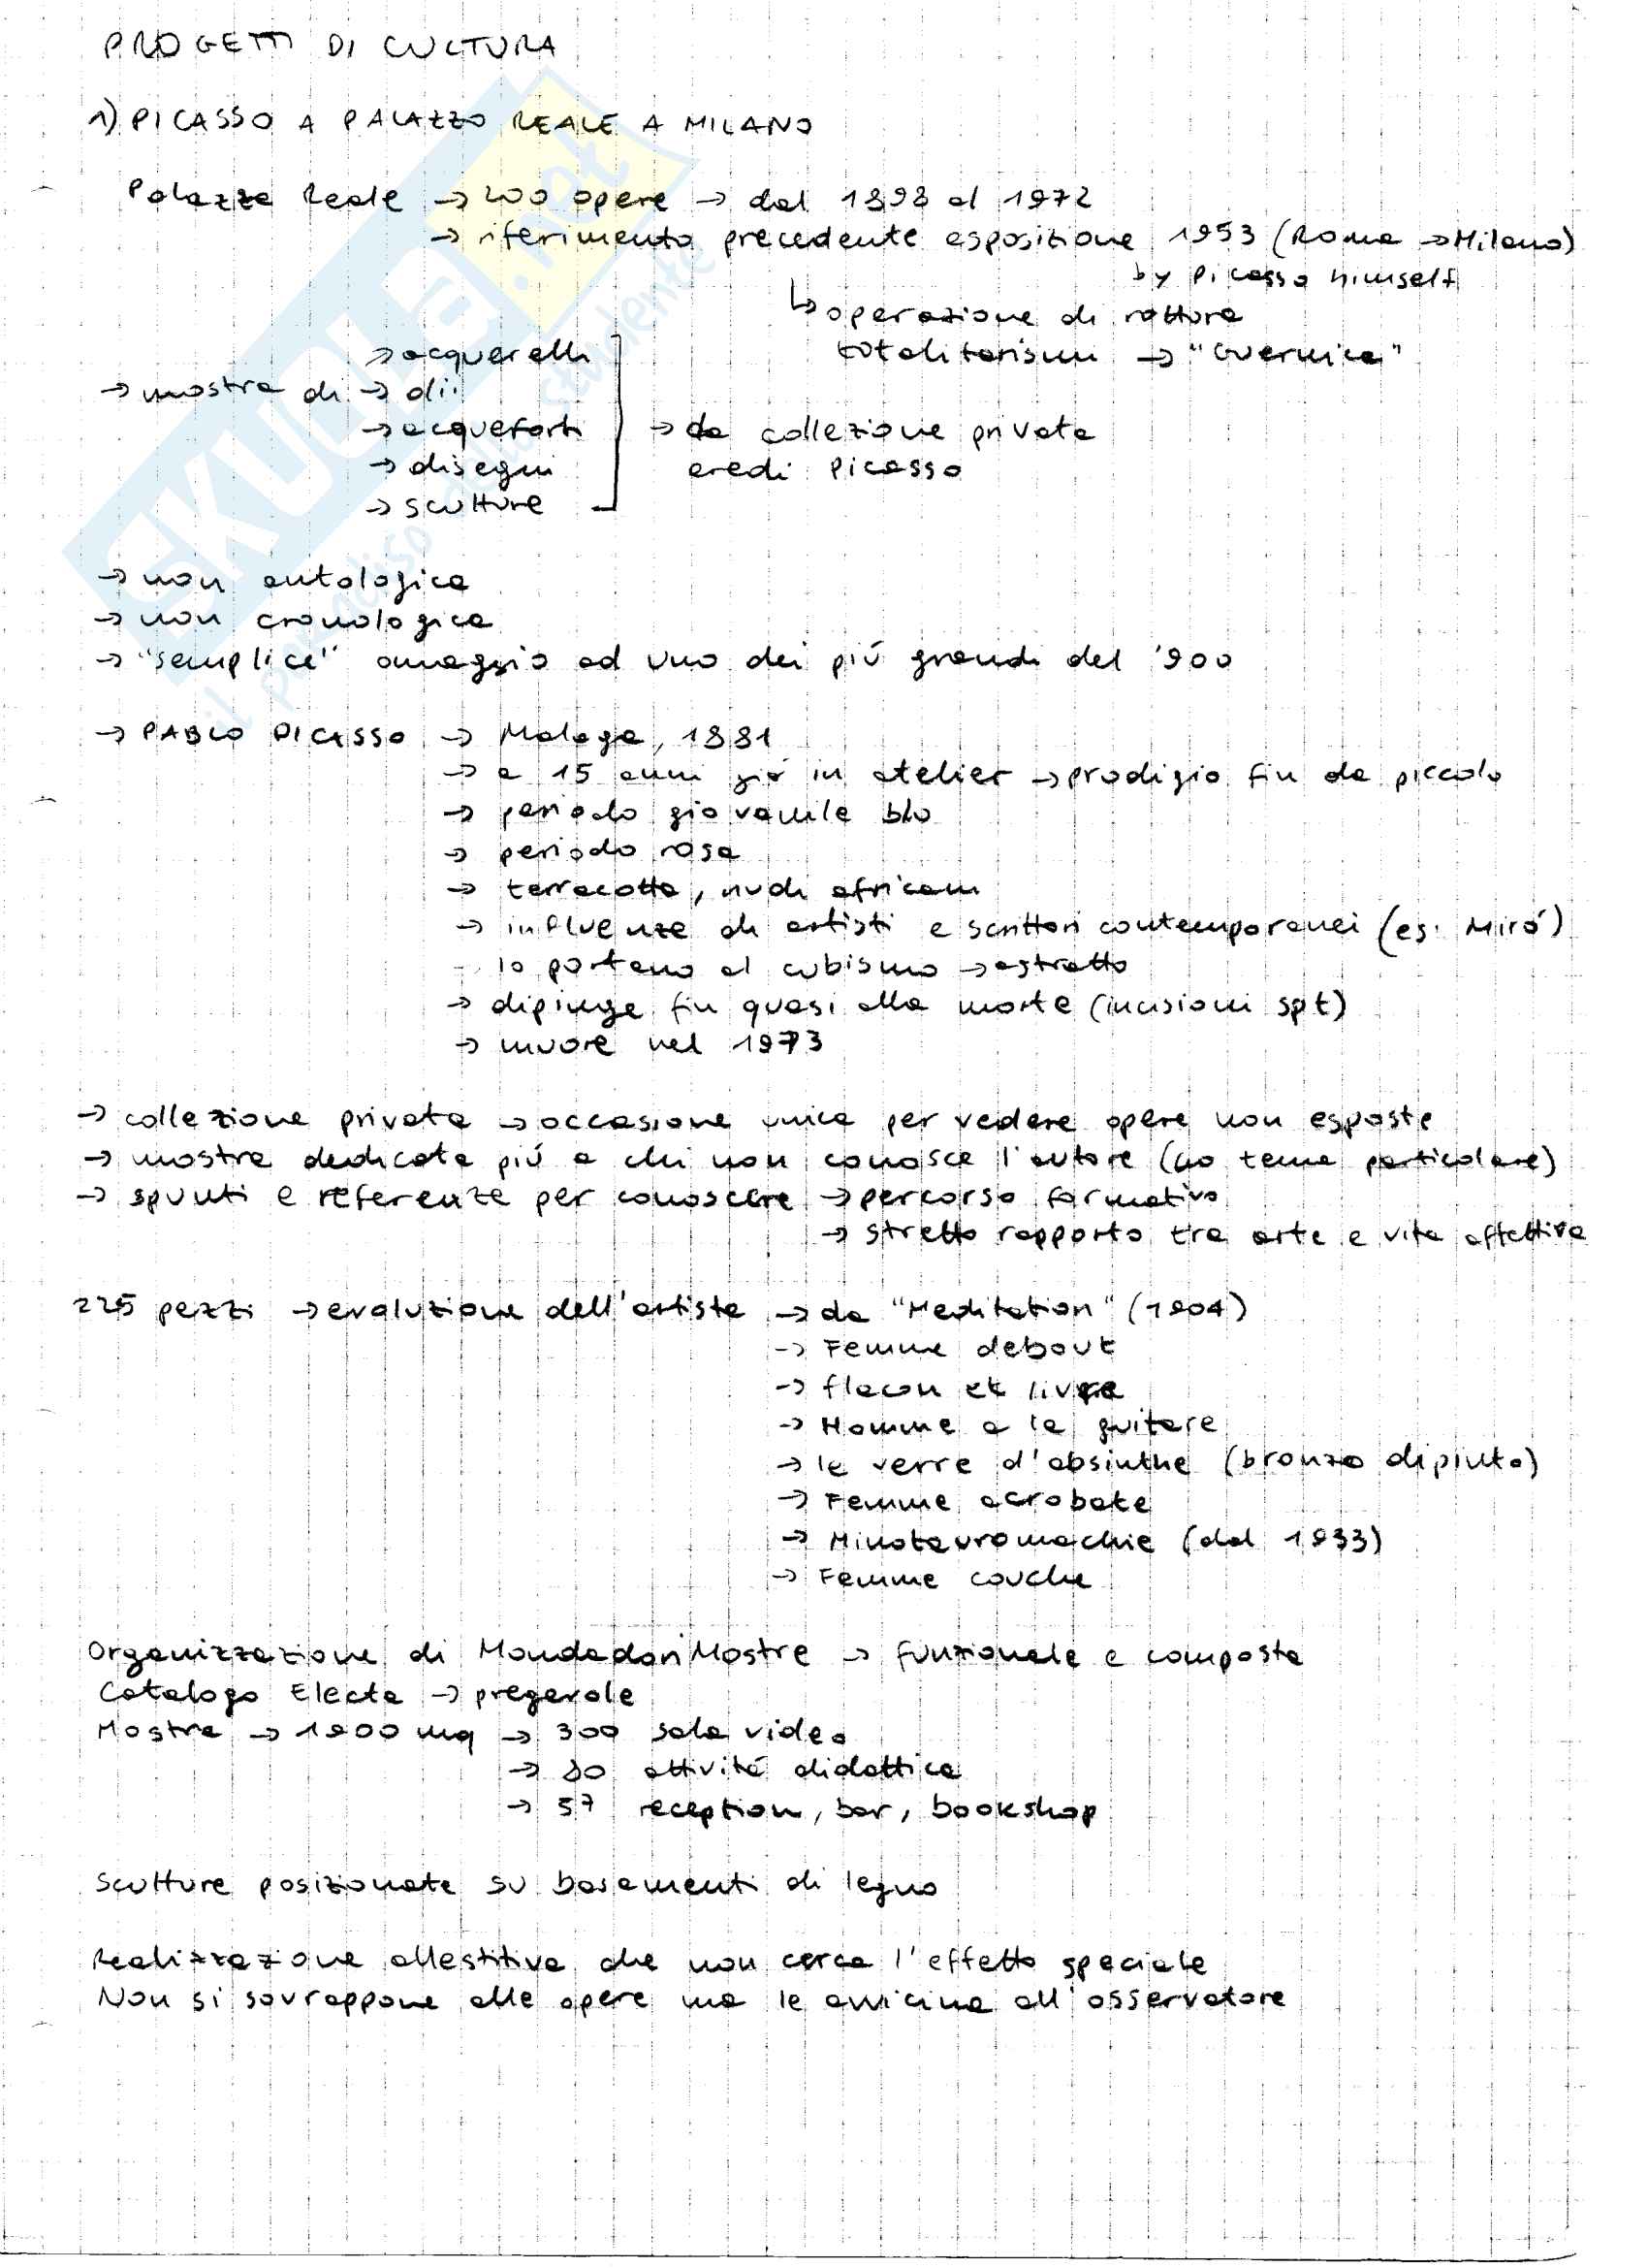 PROGETTI DI CULTURA
1) PICASSO A PALAZZO REALE A MILANO
Palazzo Reale → 200 opere → dal 1898 al 1972
→ riferimento precedente esposizione 1953 (Roma → Milano)
by Picasso himself
↳ operazione di rottura
totalitarismi → "Guernica"
→ acquerelli
→ mostra di → olii
→ acqueforti → da collezione privata
→ disegni eredi Picasso
→ sculture
→ non antologica
→ non cronologica
→ "semplice" omaggio ad uno dei piú grandi del '900
→ PABLO PICASSO → Malaga, 1881
→ a 15 anni giá in atelier → prodigio fin da piccolo
→ periodo giovanile blu
→ periodo rosa
→ terracotta, nudi africani
→ influenze di artisti e scrittori contemporanei (es. Miró)
lo portano al cubismo → astratto
→ dipinge fin quasi alla morte (incisioni spt)
→ muore nel 1973
→ collezione privata → occasione unica per vedere opere non esposte
→ mostra dedicata piú a chi non conosce l'autore (no tema particolare)
→ spunti e referenze per conoscere → percorso formativo
→ stretto rapporto tra arte e vita affettiva
225 pezzi → evoluzione dell'artista → da "Meditation" (1904)
→ Femme debout
→ flacon et livre
→ Homme a la guitare
→ le verre d'absinthe (bronzo dipinto)
→ Femme acrobate
→ Minotauromachie (dal 1933)
→ Femme couche
Organizzazione di MondadoriMostre → funzionale e composta
Catalogo Electa → pregevole
Mostra → 1900 mq → 300 sala video
→ 80 attivitá didattica
→ 57 reception, bar, bookshop
Sculture posizionate su basamenti di legno
Realizzazione allestitiva che non cerca l'effetto speciale
Non si sovrappone alle opere ma le avvicina all'osservatore
SKUOLA.net
il paradiso dello studente